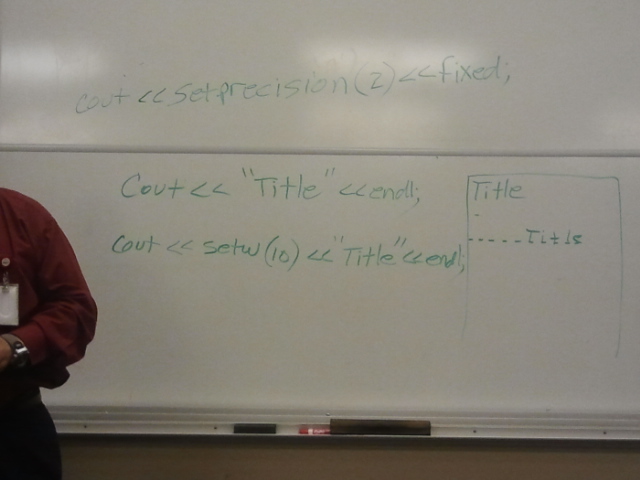 cout << setprecision(2) << fixed;
Cout << "Title" << endl;
cout << setw(10) << "Title" << endl;
Title
-----Title